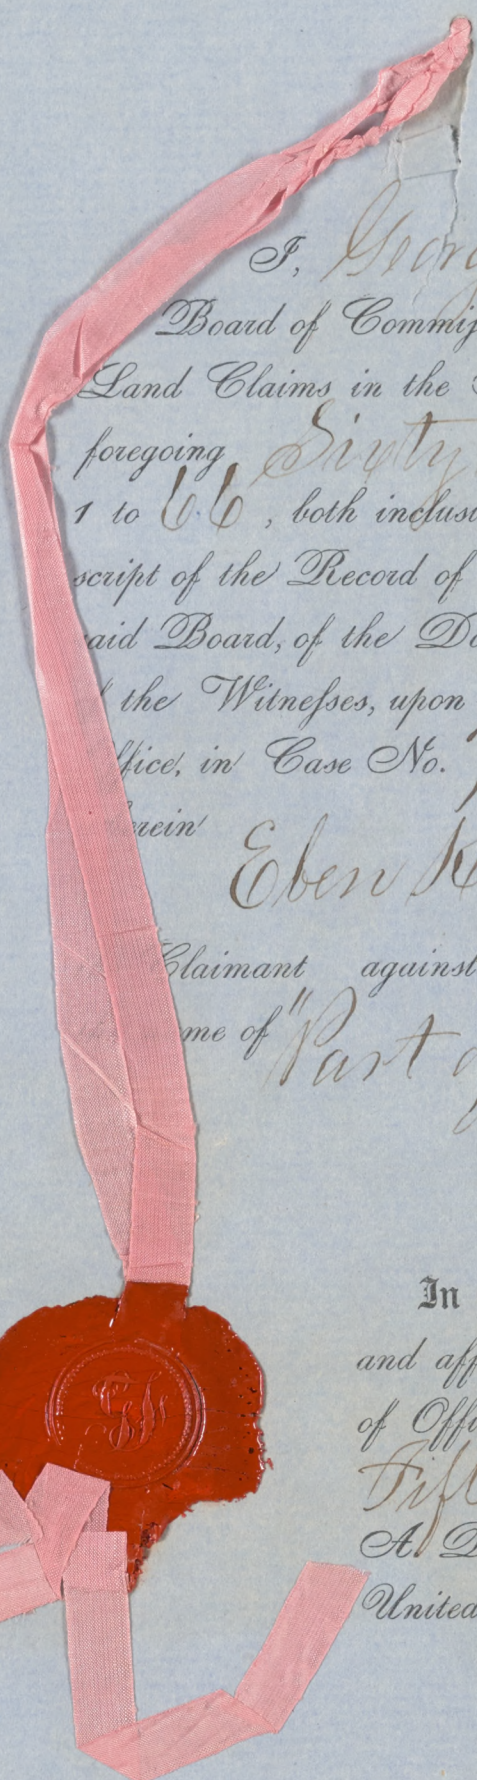 I, Geor
Board of Commis
Land Claims in the
foregoing Sixty
1 to 66, both inclus
script of the Record of
aid Board, of the D
the Witnesses, upon
ffice, in Case No.
erein
Eben
Claimant against
me of "Part
In
and aff
of Offi
Fift
A. D
United